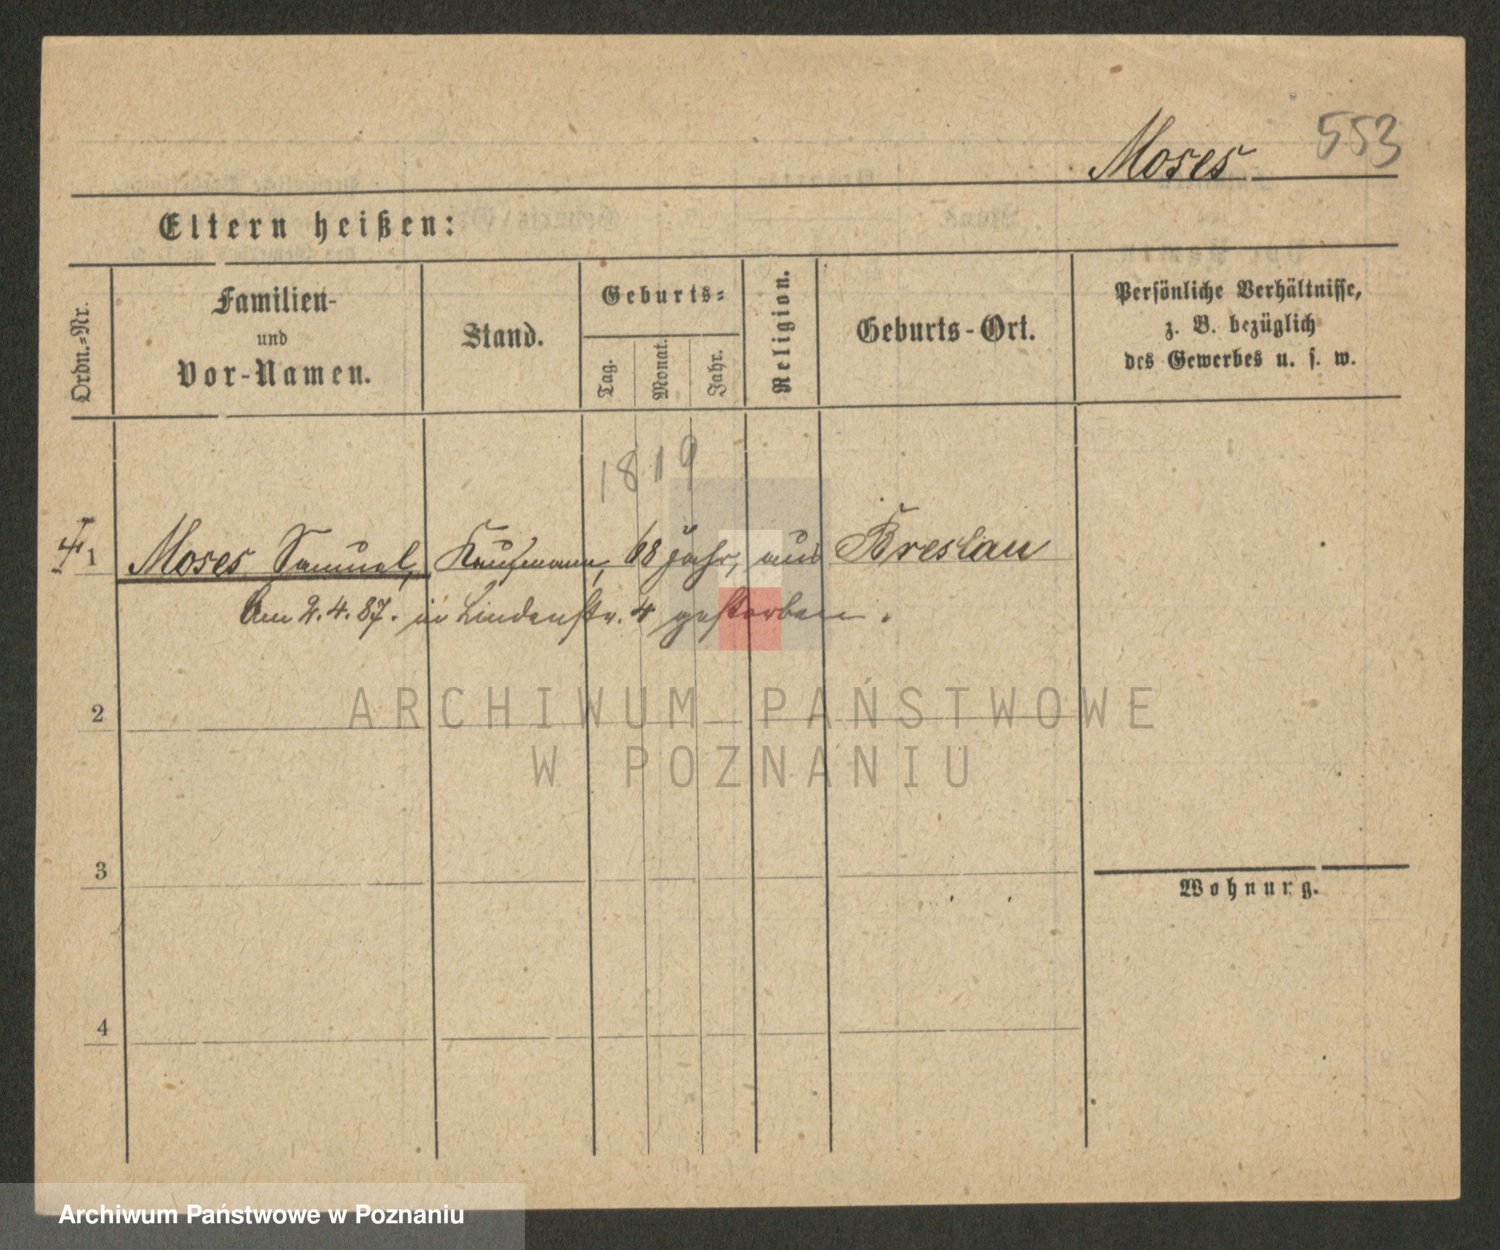 Moses 553
Eltern heißen:
Ordn.-Nr.
Familien-
und
Vor-Namen.
Stand.
Geburts-
Tag.
Monat.
Jahr.
Religion.
Geburts-Ort.
Persönliche Verhältnisse,
z. B. bezüglich
des Gewerbes u. s. w.
1819
1 Moses Samuel, Kaufmann, 68 Jahr, aus Breslau
Am 2.4.87. in Lindenstr. 4 gestorben.
2
ARCHIWUM PAŃSTWOWE
W POZNANIU
3
Wohnung.
4
Archiwum Państwowe w Poznaniu